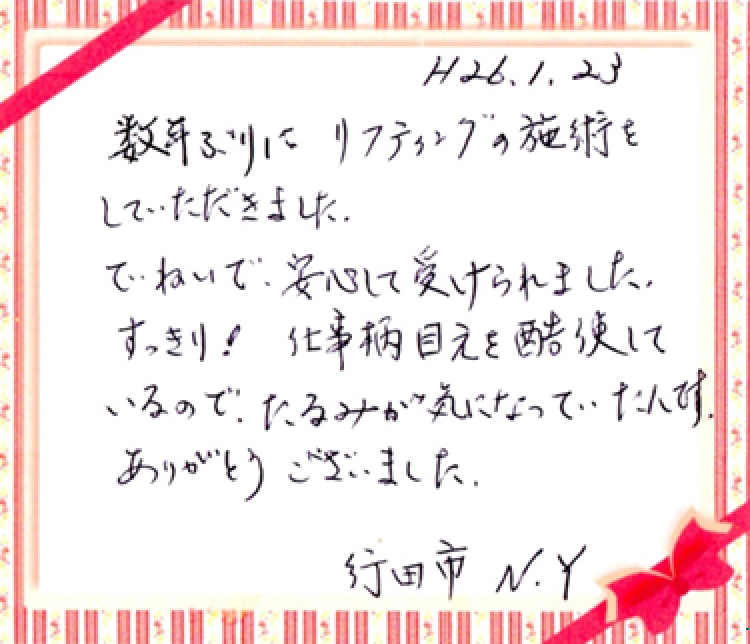 H26.1.23
数年ぶりに リフティングの施術を
していただきました.
ていねいで、安心して受けられました.
すっきり! 仕事柄目元を酷使して
いるので、たるみが気になっていたんです.
ありがとうございました.
行田市 N.Y